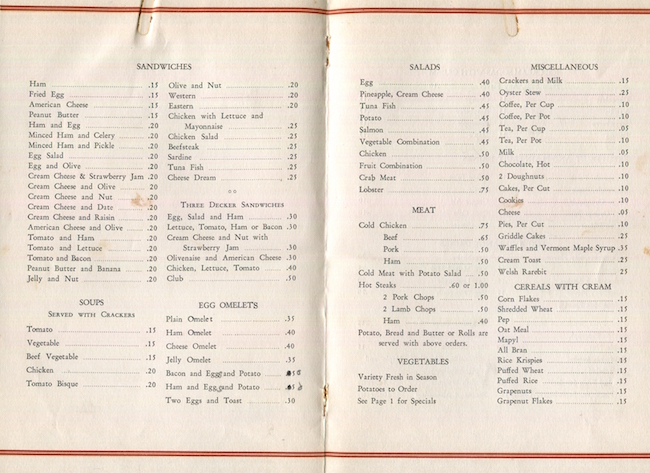 SANDWICHES
Ham .15
Fried Egg .15
American Cheese .15
Peanut Butter .15
Ham and Egg .20
Minced Ham and Celery .20
Minced Ham and Pickle .20
Egg Salad .20
Egg and Olive .20
Cream Cheese & Strawberry Jam .20
Cream Cheese and Olive 20
Cream Cheese and Nut .20
Cream Cheese and Date .20
Cream Cheese and Raisin .20
American Cheese and Olive .20
Tomato and Ham .20
Tomato and Lettuce .20
Tomato and Bacon .20
Peanut Butter and Banana .20
Jelly and Nut .20
Olive and Nut .20
Western .20
Eastern .20
Chicken with Lettuce and
Mayonnaise .25
Chicken Salad .25
Beefsteak .25
Sardine .25
Tuna Fish .25
Cheese Dream .25
THREE DECKER SANDWICHES
Egg, Salad and Ham .30
Lettuce, Tomato, Ham or Bacon .30
Cream Cheese and Nut with
Strawberry Jam .30
Olivenaise and American Cheese .30
Chicken, Lettuce, Tomato .40
Club .50
SOUPS
SERVED WITH CRACKERS
Tomato .15
Vegetable .15
Beef Vegetable .15
Chicken .20
Tomato Bisque .20
EGG OMELETS
Plain Omelet .35
Ham Omelet .40
Cheese Omelet .40
Jelly Omelet .35
Bacon and Egg and Potato
Ham and Egg and Potato
Two Eggs and Toast .30
SALADS
Egg .40
Pineapple, Cream Cheese .40
Tuna Fish .45
Potato .45
Salmon .45
Vegetable Combination .45
Chicken .50
Fruit Combination .50
Crab Meat .50
Lobster .75
MEAT
Cold Chicken .75
Beef .65
Pork .50
Ham .50
Cold Meat with Potato Salad .50
Hot Steaks .60 or 1.00
2 Pork Chops .50
2 Lamb Chops .50
Ham .40
Potato, Bread and Butter or Rolls are
served with above orders.
VEGETABLES
Variety Fresh in Season
Potatoes to Order
See Page 1 for Specials
MISCELLANEOUS
Crackers and Milk .15
Oyster Stew .25
Coffee, Per Cup .10
Coffee, Per Pot .10
Tea, Per Cup .05
Tea, Per Pot .10
Milk .05
Chocolate, Hot .10
2 Doughnuts .10
Cakes, Per Cut .10
Cookies .10
Cheese .05
Pies, Per Cut .10
Griddle Cakes .25
Waffles and Vermont Maple Syrup .35
Cream Toast .25
Welsh Rarebit .25
CEREALS WITH CREAM
Corn Flakes .15
Shredded Wheat .15
Pep .15
Oat Meal .15
Mapyl .15
All Bran .15
Rice Krispies .15
Puffed Wheat .15
Puffed Rice .15
Grapenuts .15
Grapenut Flakes .15